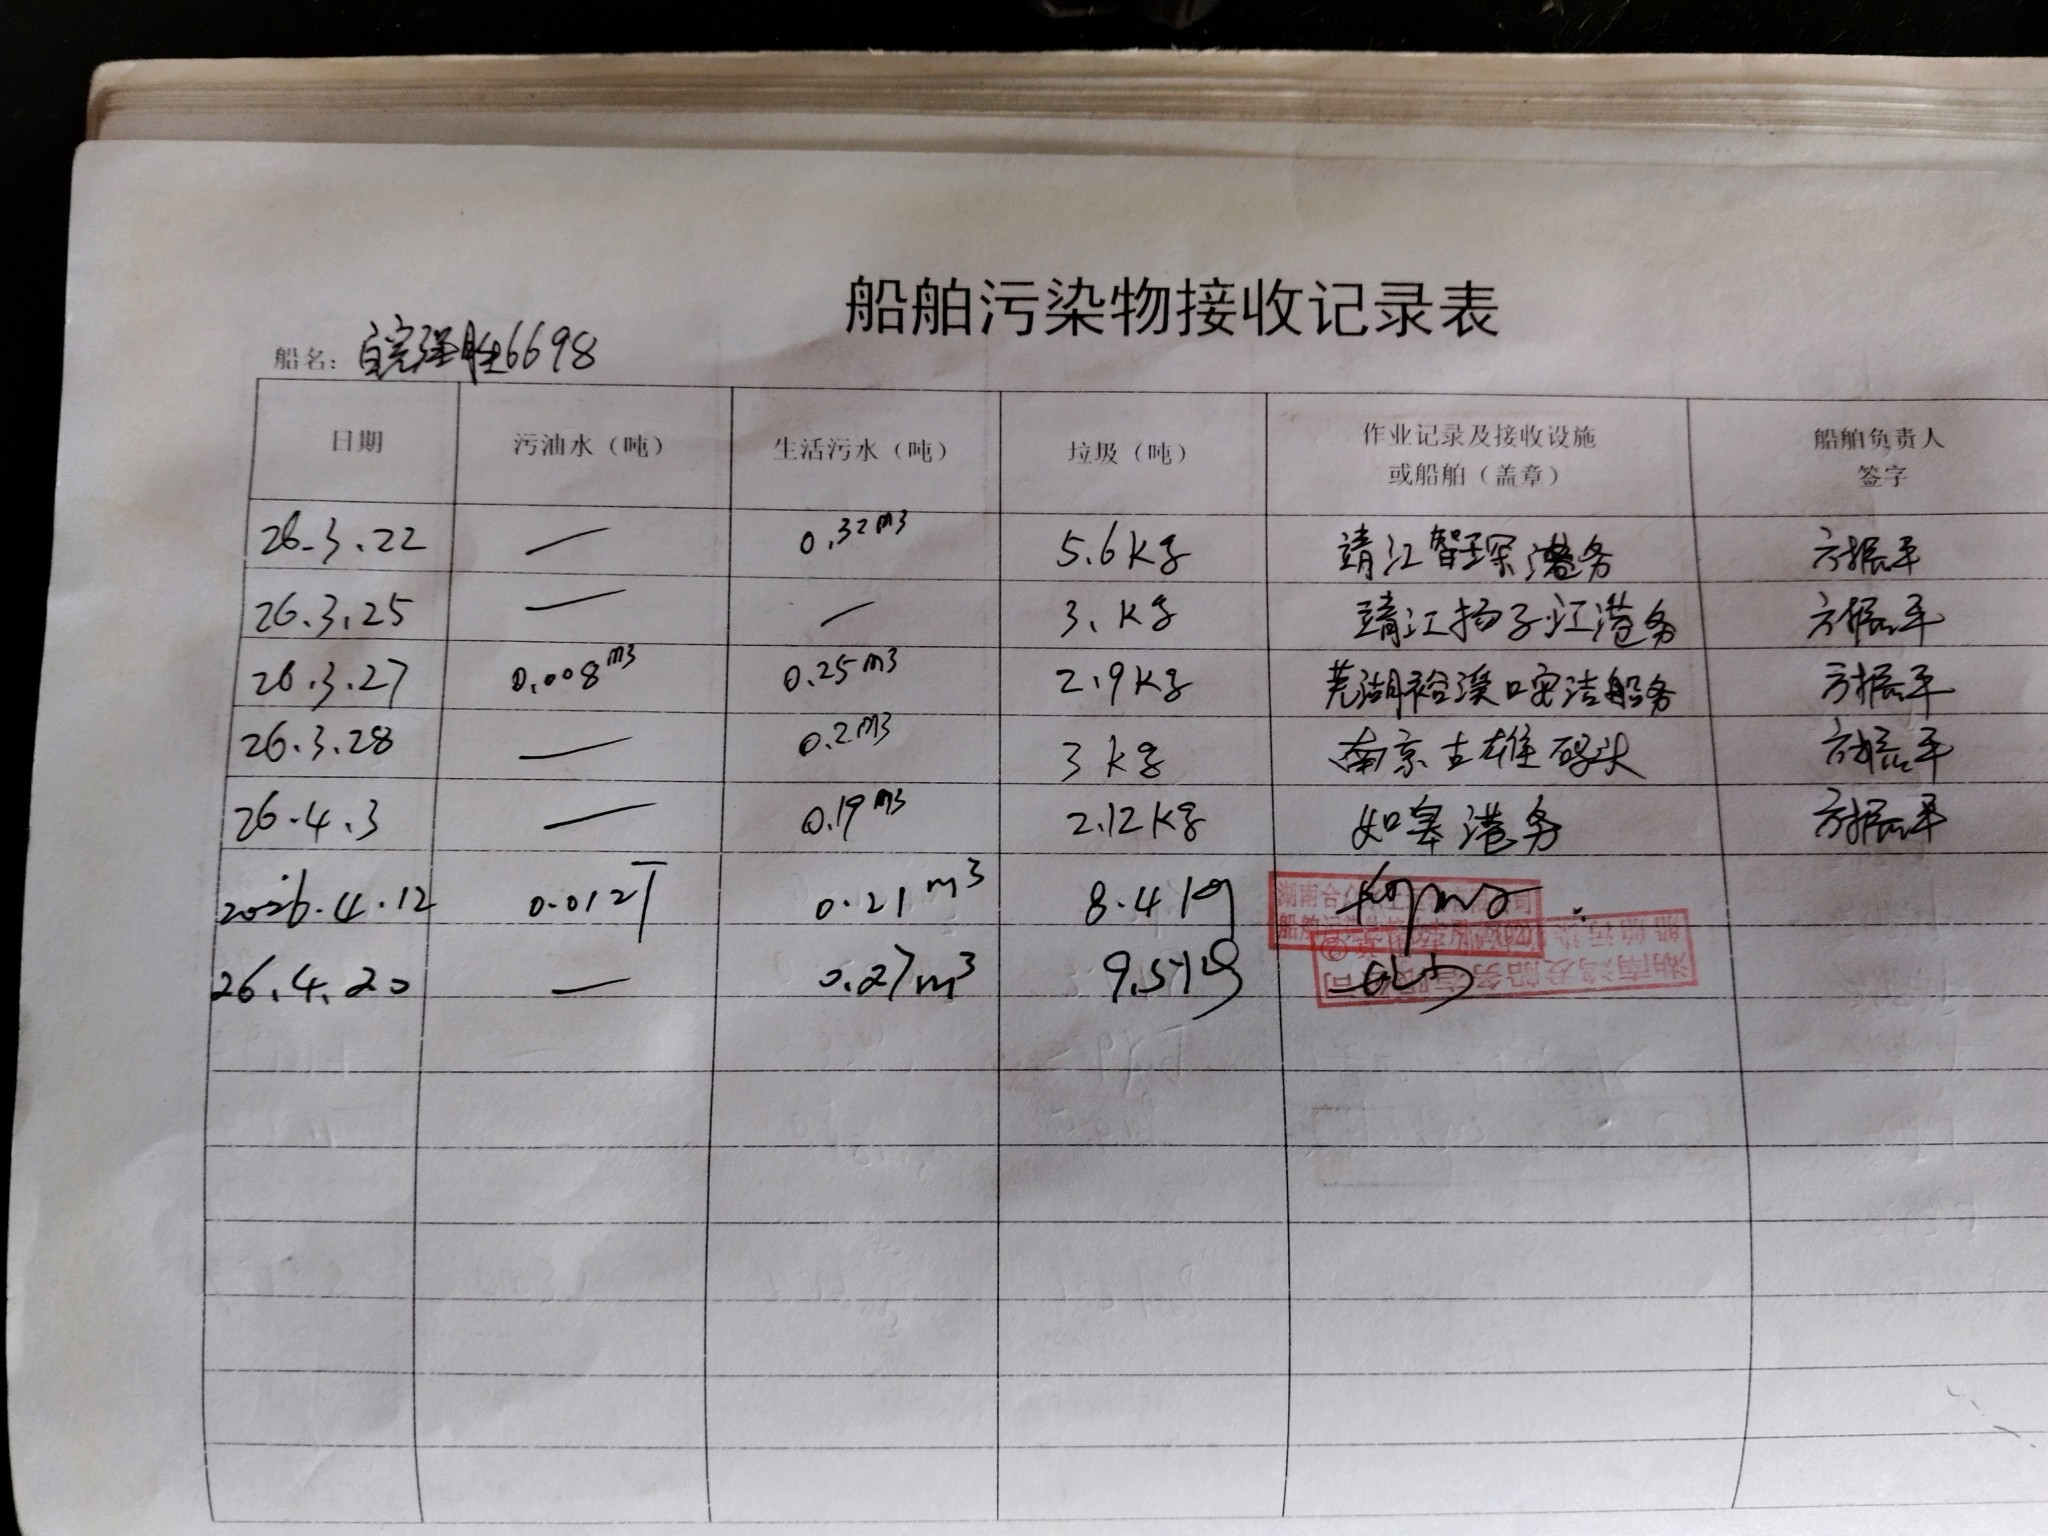 船舶污染物接收记录表
船名：皖强胜6698
日期 污油水（吨） 生活污水（吨） 垃圾（吨） 作业记录及接收设施或船舶（盖章） 船舶负责人签字
26.3.22 — 0.32m3 5.6kg 靖江智琛港务 方振平
26.3.25 — — 3.kg 靖江扬子江港务 方振平
26.3.27 0.008m3 0.25m3 2.9kg 芜湖裕溪口 洁船务 方振平
26.3.28 — 0.2m3 3kg 南京古雄码头 方振平
26.4.3 — 0.19m3 2.12kg 如皋港务 方振平
2026.4.12 0.012T 0.21m3 8.4kg
26.4.20 — 0.27m3 9.5kg
湖南鸿发船务有限公司